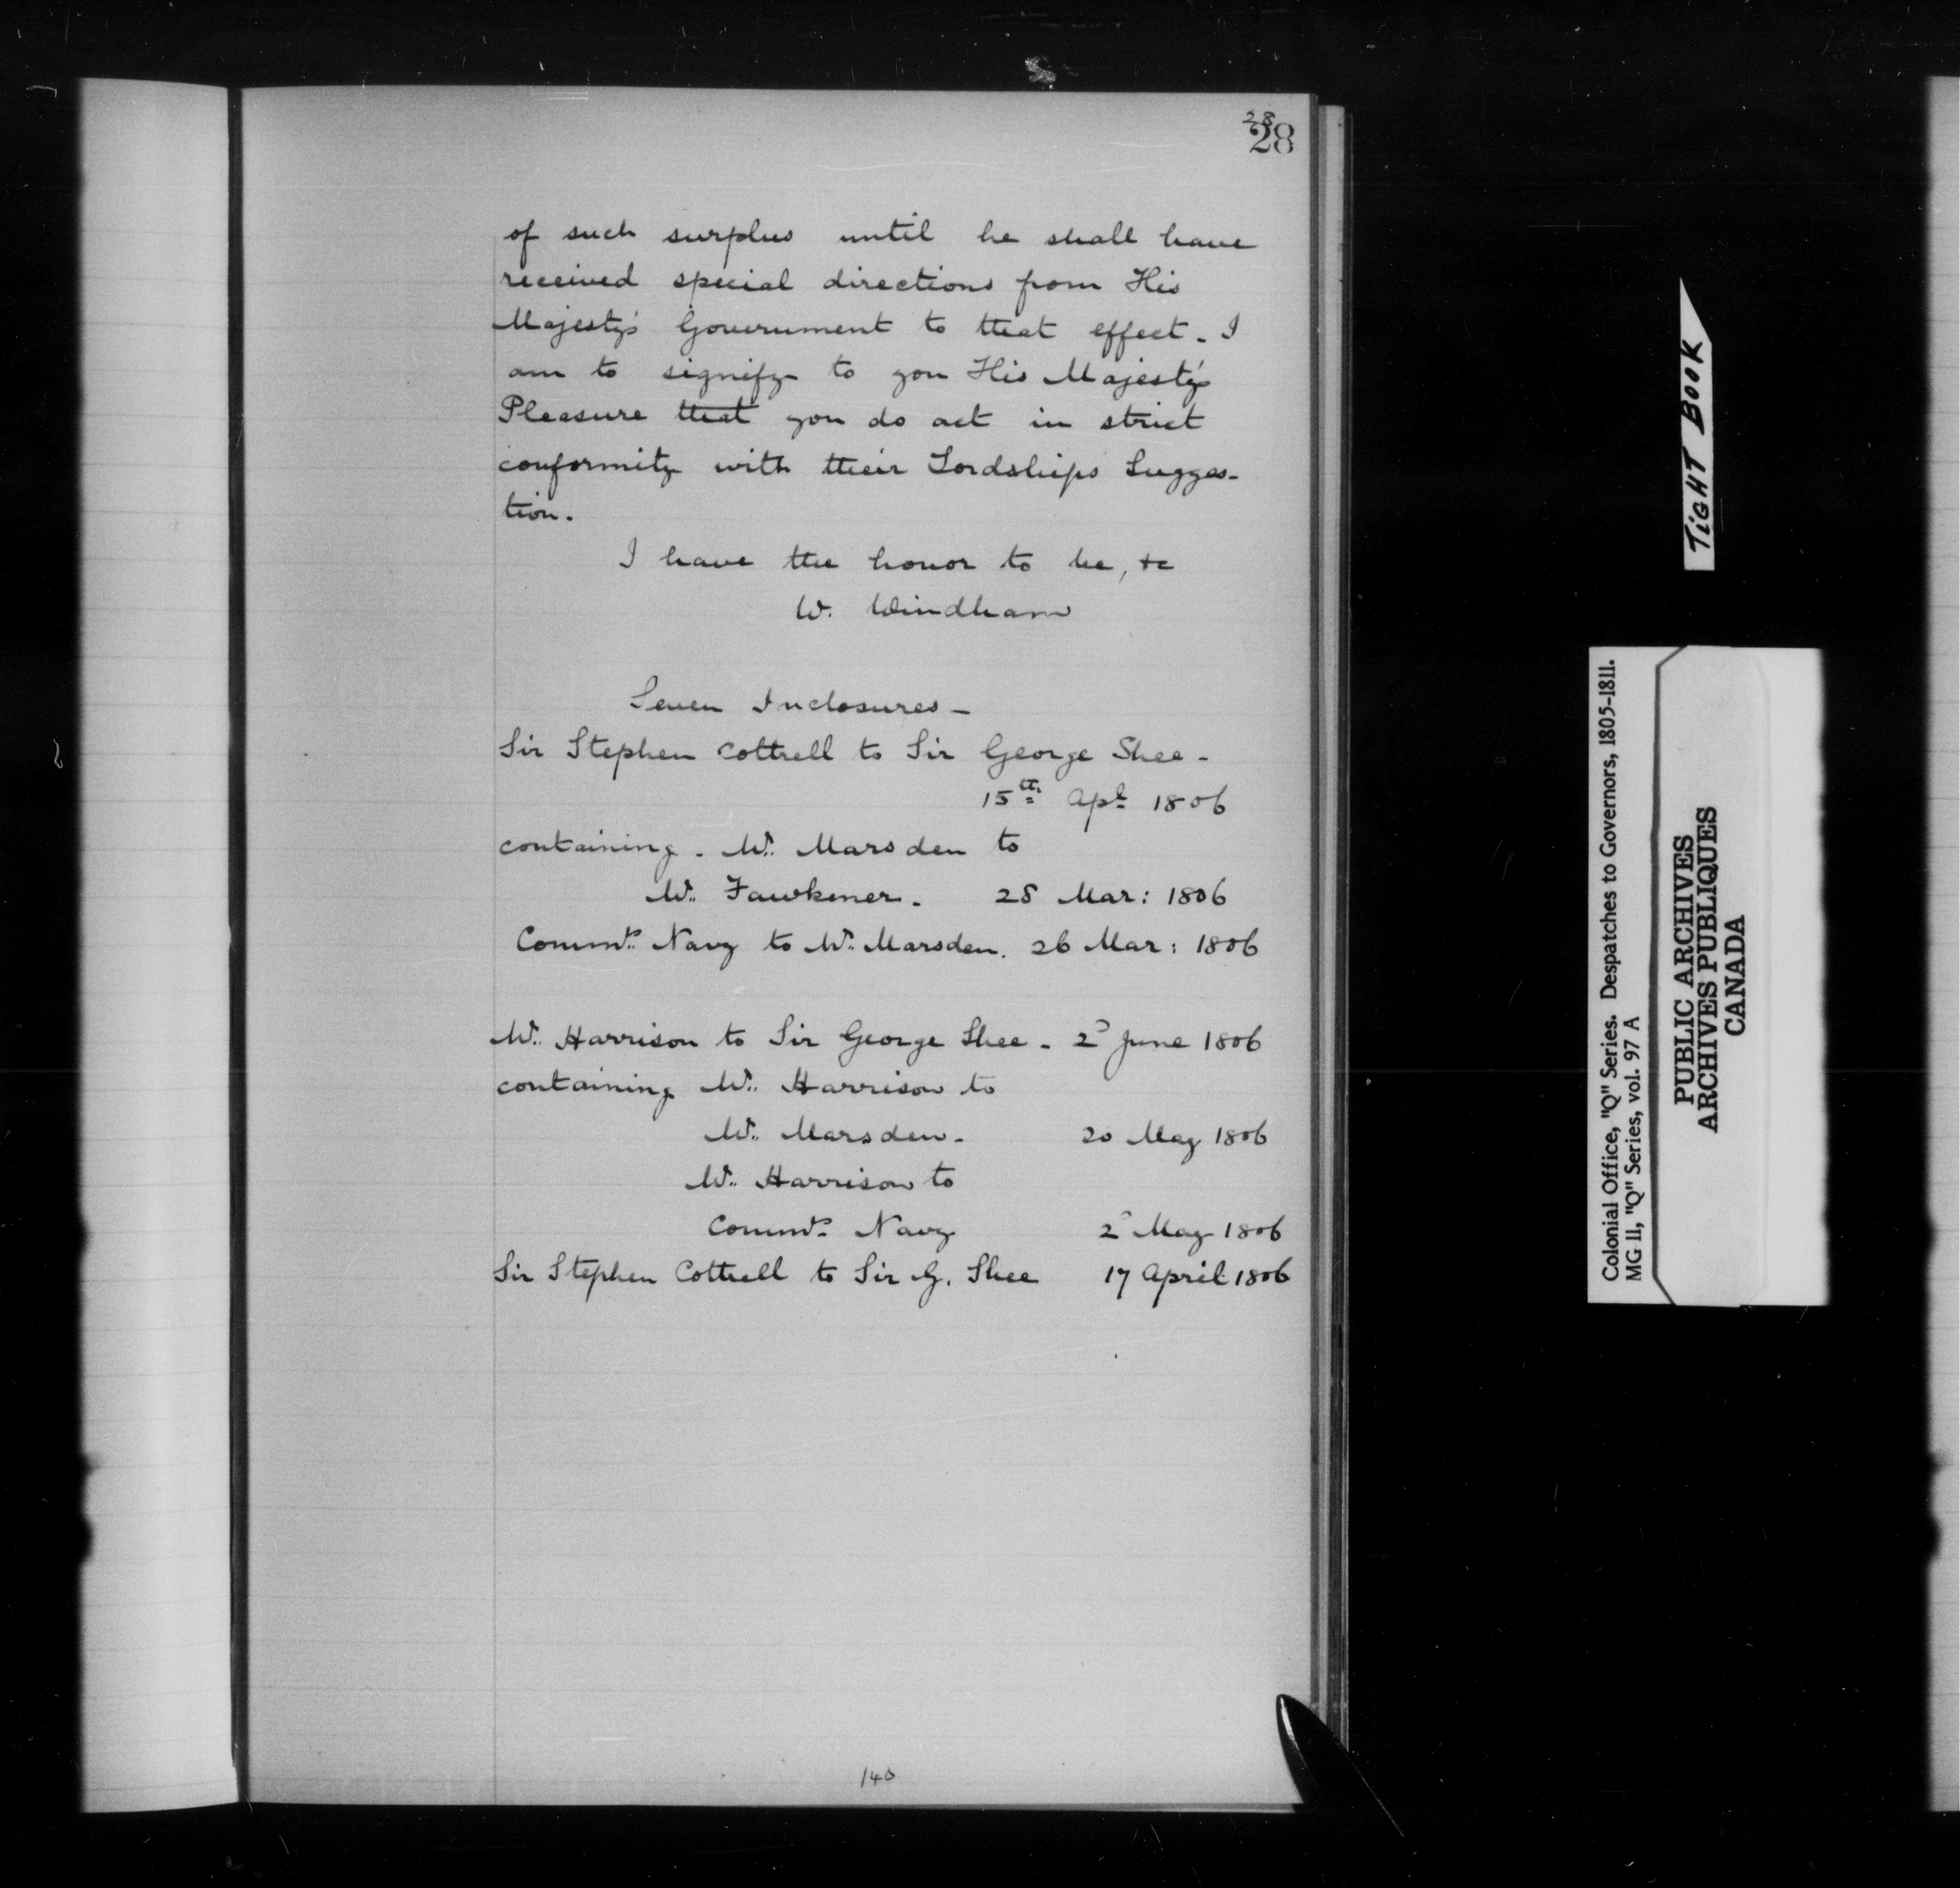 28
28
of such surplus until he shall have
received special directions from His
Majesty's Government to that effect. I
am to signify to you His Majesty's
Pleasure that you do act in strict
conformity with their Lordships Sugges-
tion.
I have the honor to be, &c
W. Windham
Seven Inclosures -
Sir Stephen Cottrell to Sir George Shee -
15th Apl 1806
containing. Mr. Marsden to
Mr. Fawkener. 28 Mar: 1806
Commrs. Navy to Mr. Marsden. 26 Mar: 1806
Mr. Harrison to Sir George Shee - 2d June 1806
containing Mr. Harrison to
Mr. Marsden - 20 May 1806
Mr. Harrison to
Commrs. Navy 2d May 1806
Sir Stephen Cottrell to Sir G. Shee 17 April 1806
140
TIGHT BOOK
Colonial Office, "Q" Series. Despatches to Governors, 1805-1811.
MG 11, "Q" Series, vol. 97 A
PUBLIC ARCHIVES
ARCHIVES PUBLIQUES
CANADA